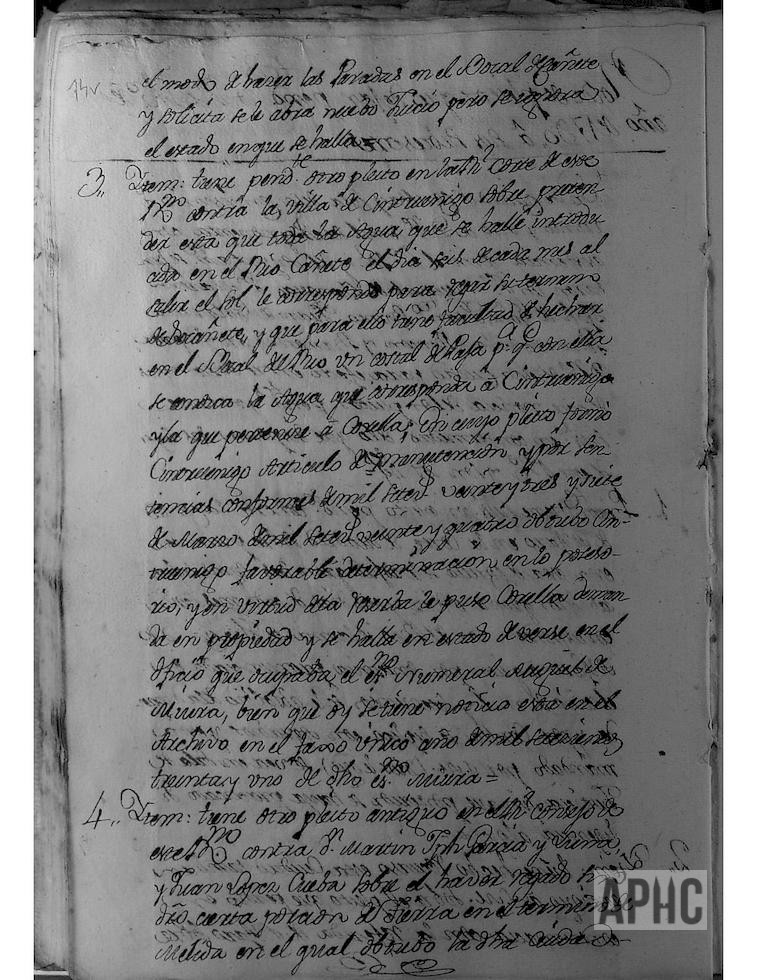 13v
el modo de hacer las Paradas en el Bocal de Cañete
y solicita se le abra nuebo Juicio pero se ignora
el estado en que se halla=
3,, Ytem: tiene pend.te otro pleito en la Rl Corte de este
R.no contra la villa de Cintruenigo sobre preten
der esta que toda la Agua que se halle introdu
cida en el Rio Cañete el dia seis de cada mes al
salir el Sol, le corresponde para regar su termino
de Cañete, y que para ello tiene facultad de hechar
en el Bocal del Rio un costal de Paja p.a q.e con ella
se conozca la Agua que corresponda a Cintruenigo
y la que pertenece à Corella; En cuyo pleito formò
Cintruenigo Articulo de manutencion y por Sen-
tencias conformes de mil setez.s veinte y tres y siete
de Marzo de mil setez.s veinte y quatro obtubo Cin-
truenigo favorable determinacion en lo poseso-
rio, y en virtud de la Reserba le puso Corella deman-
da en propiedad y se halla en estado de verse en el
Oficio que ocupaba el es.no Numeral Miguel de
Miura, bien que oy se tiene noticia està en el
Archivo en el faxo unico año de mil setecientos
treinta y uno de dho es.no Miura=
4,, Ytem: tiene otro pleito antiguo en el Rl Consejo de
este R.no contra D.n Martin Jph Garcia y
y Juan Lopez Cueba sobre el haver regado
dho cierta porcion de Tierra en el termino de
Melida en el qual obtubo la dha Ciudad
APHC